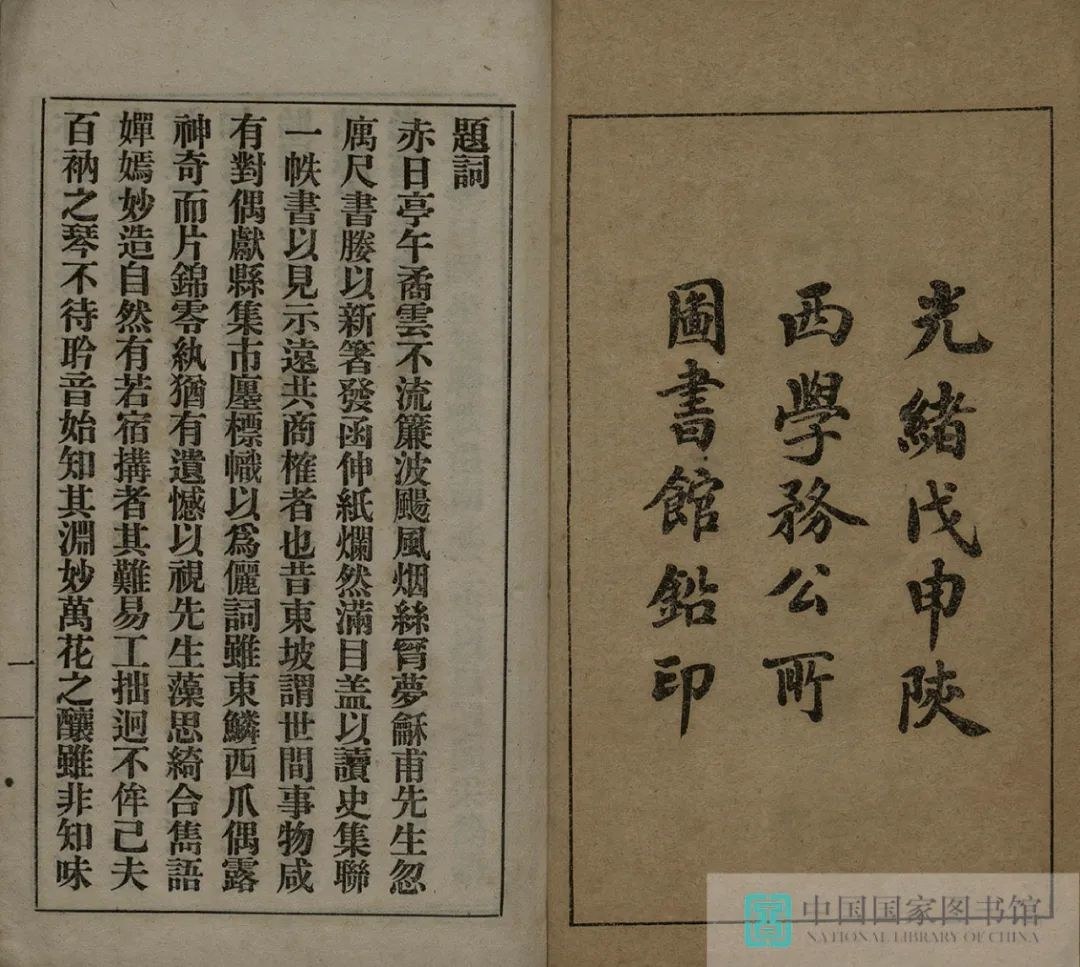 光緒戊申陝
西學務公所
圖書館鉛印
題詞
赤日亭午矞雲不流簾波颺風烟絲胃夢龢甫先生忽
厲尺書媵以新箸發函伸紙爛然滿目盖以讀史集聯
一帙書以見示遠共商榷者也昔東坡謂世間事物咸
有對偶獻縣集市廛標幟以爲儷詞雖東鱗西爪偶露
神奇而片錦零紈猶有遺憾以視先生藻思綺合雋語
嬋嫣妙造自然有若宿搆者其難易工拙迥不侔已夫
百衲之琴不待聆音始知其淵妙萬花之釀雖非知味
一
中国国家图书馆
NATIONAL LIBRARY OF CHINA